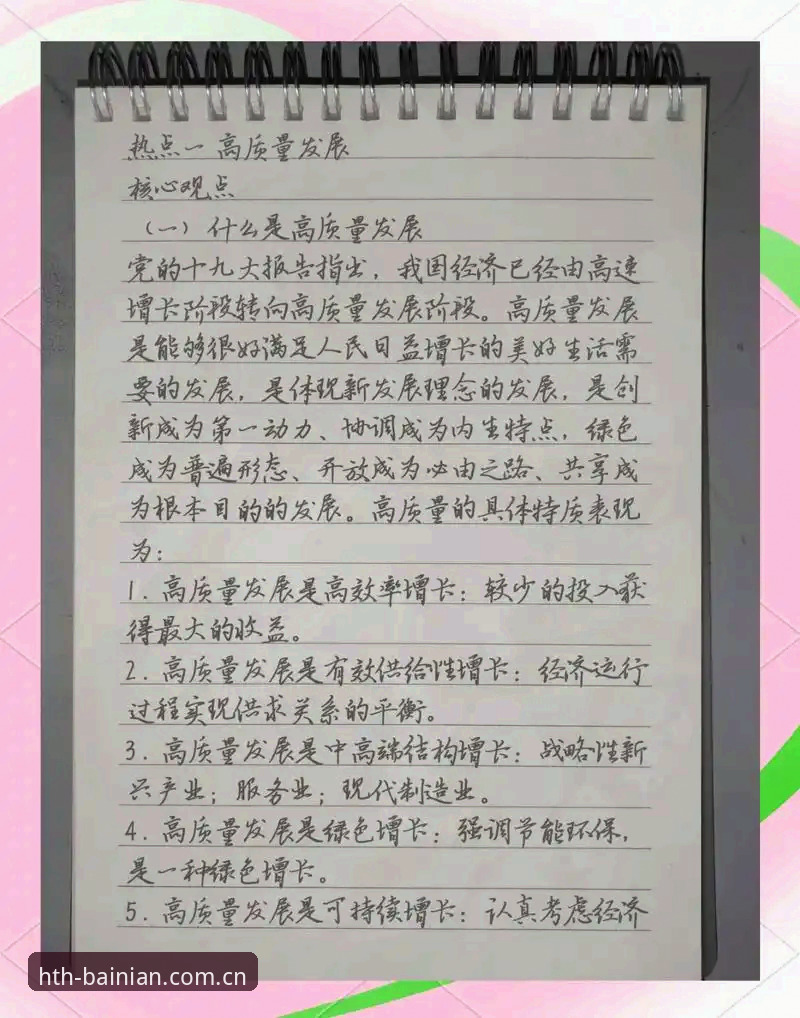 热点一 高质量发展
核心观点
（一）什么是高质量发展
党的十九大报告指出，我国经济已经由高速
增长阶段转向高质量发展阶段。高质量发展
是能够很好满足人民日益增长的美好生活需
要的发展，是体现新发展理念的发展，是创
新成为第一动力、协调成为内生特点，绿色
成为普遍形态、开放成为必由之路、共享成
为根本目的的发展。高质量的具体特质表现
为：
1. 高质量发展是高效率增长：较少的投入获
得最大的收益。
2. 高质量发展是有效供给性增长：经济运行
过程实现供求关系的平衡。
3. 高质量发展是中高端结构增长：战略性新
兴产业；服务业；现代制造业。
4. 高质量发展是绿色增长：强调节能环保，
是一种绿色增长。
5. 高质量发展是可持续增长：认真考虑经济
hth-bainian.com.cn